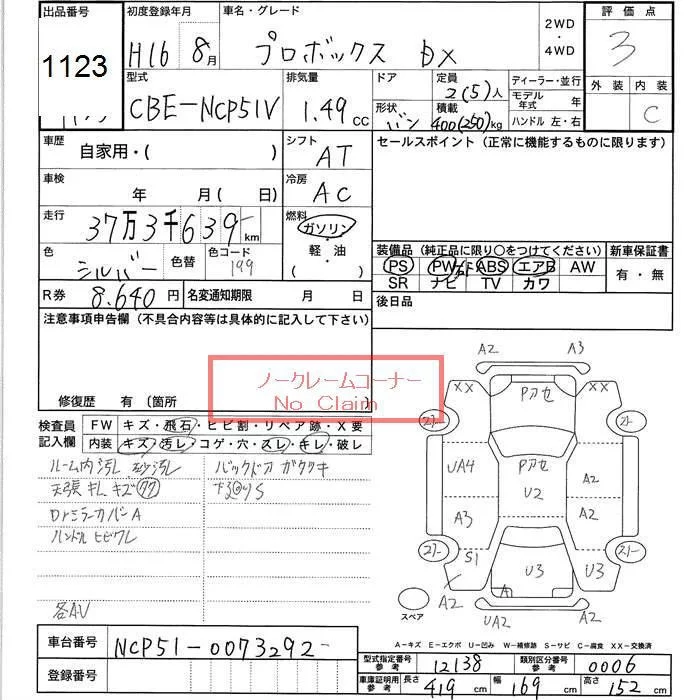 出品番号 初度登録年月 車名・グレード 2WD・4WD 評価点
1123 H16 8月 プロボックス DX 3
型式 排気量 ドア 定員 ディーラー・並行 外装 内装
CBE-NCP51V 1.49cc 形状 バン 2(5)人 積載 400(250)kg モデル年式 年 ハンドル 左・右 C
車歴 自家用・( ) シフト AT セールスポイント(正常に機能するものに限ります)
車検 年 月(日) 冷房 AC
走行 37万3千639km 燃料 ガソリン・軽・油・( )
色 シルバー 色替 色コード 199
装備品(純正品に限り○をつけてください) 新車保証書
PS PW ABS エアB AW 有・無
SR ナビ TV カワ
R券 8.640円 名変通知期限 月 日 後日品
注意事項申告欄(不具合内容等は具体的に記入して下さい)
ノークレームコーナー
No Claim
修復歴 有(箇所
検査員記入欄 FW キズ・飛石・ヒビ割・リペア跡・X要
内装 キズ・汚レ・コゲ・穴・スレ・キレ・破レ
ルーム内汚レ 砂汚レ バックドア ガタツキ
天張 キレ キズ
DrミラーカバーA
ハンドル ヒビワレ
各AU
A2 A3
XX Pガセ XX
UA4 Pガセ A2
U2
A3 A2
S1 U3 U3
A2 A A2
UA2
スペア
A-キズ E-エクボ U-凹み W-補修跡 S-サビ C-腐食 XX-交換済
車台番号 NCP51-0073292-
登録番号
型式指定番号 参考 12138 類別区分番号 参考 0006
車庫証明用 参考 長さ 419cm 幅 169cm 高さ 152cm